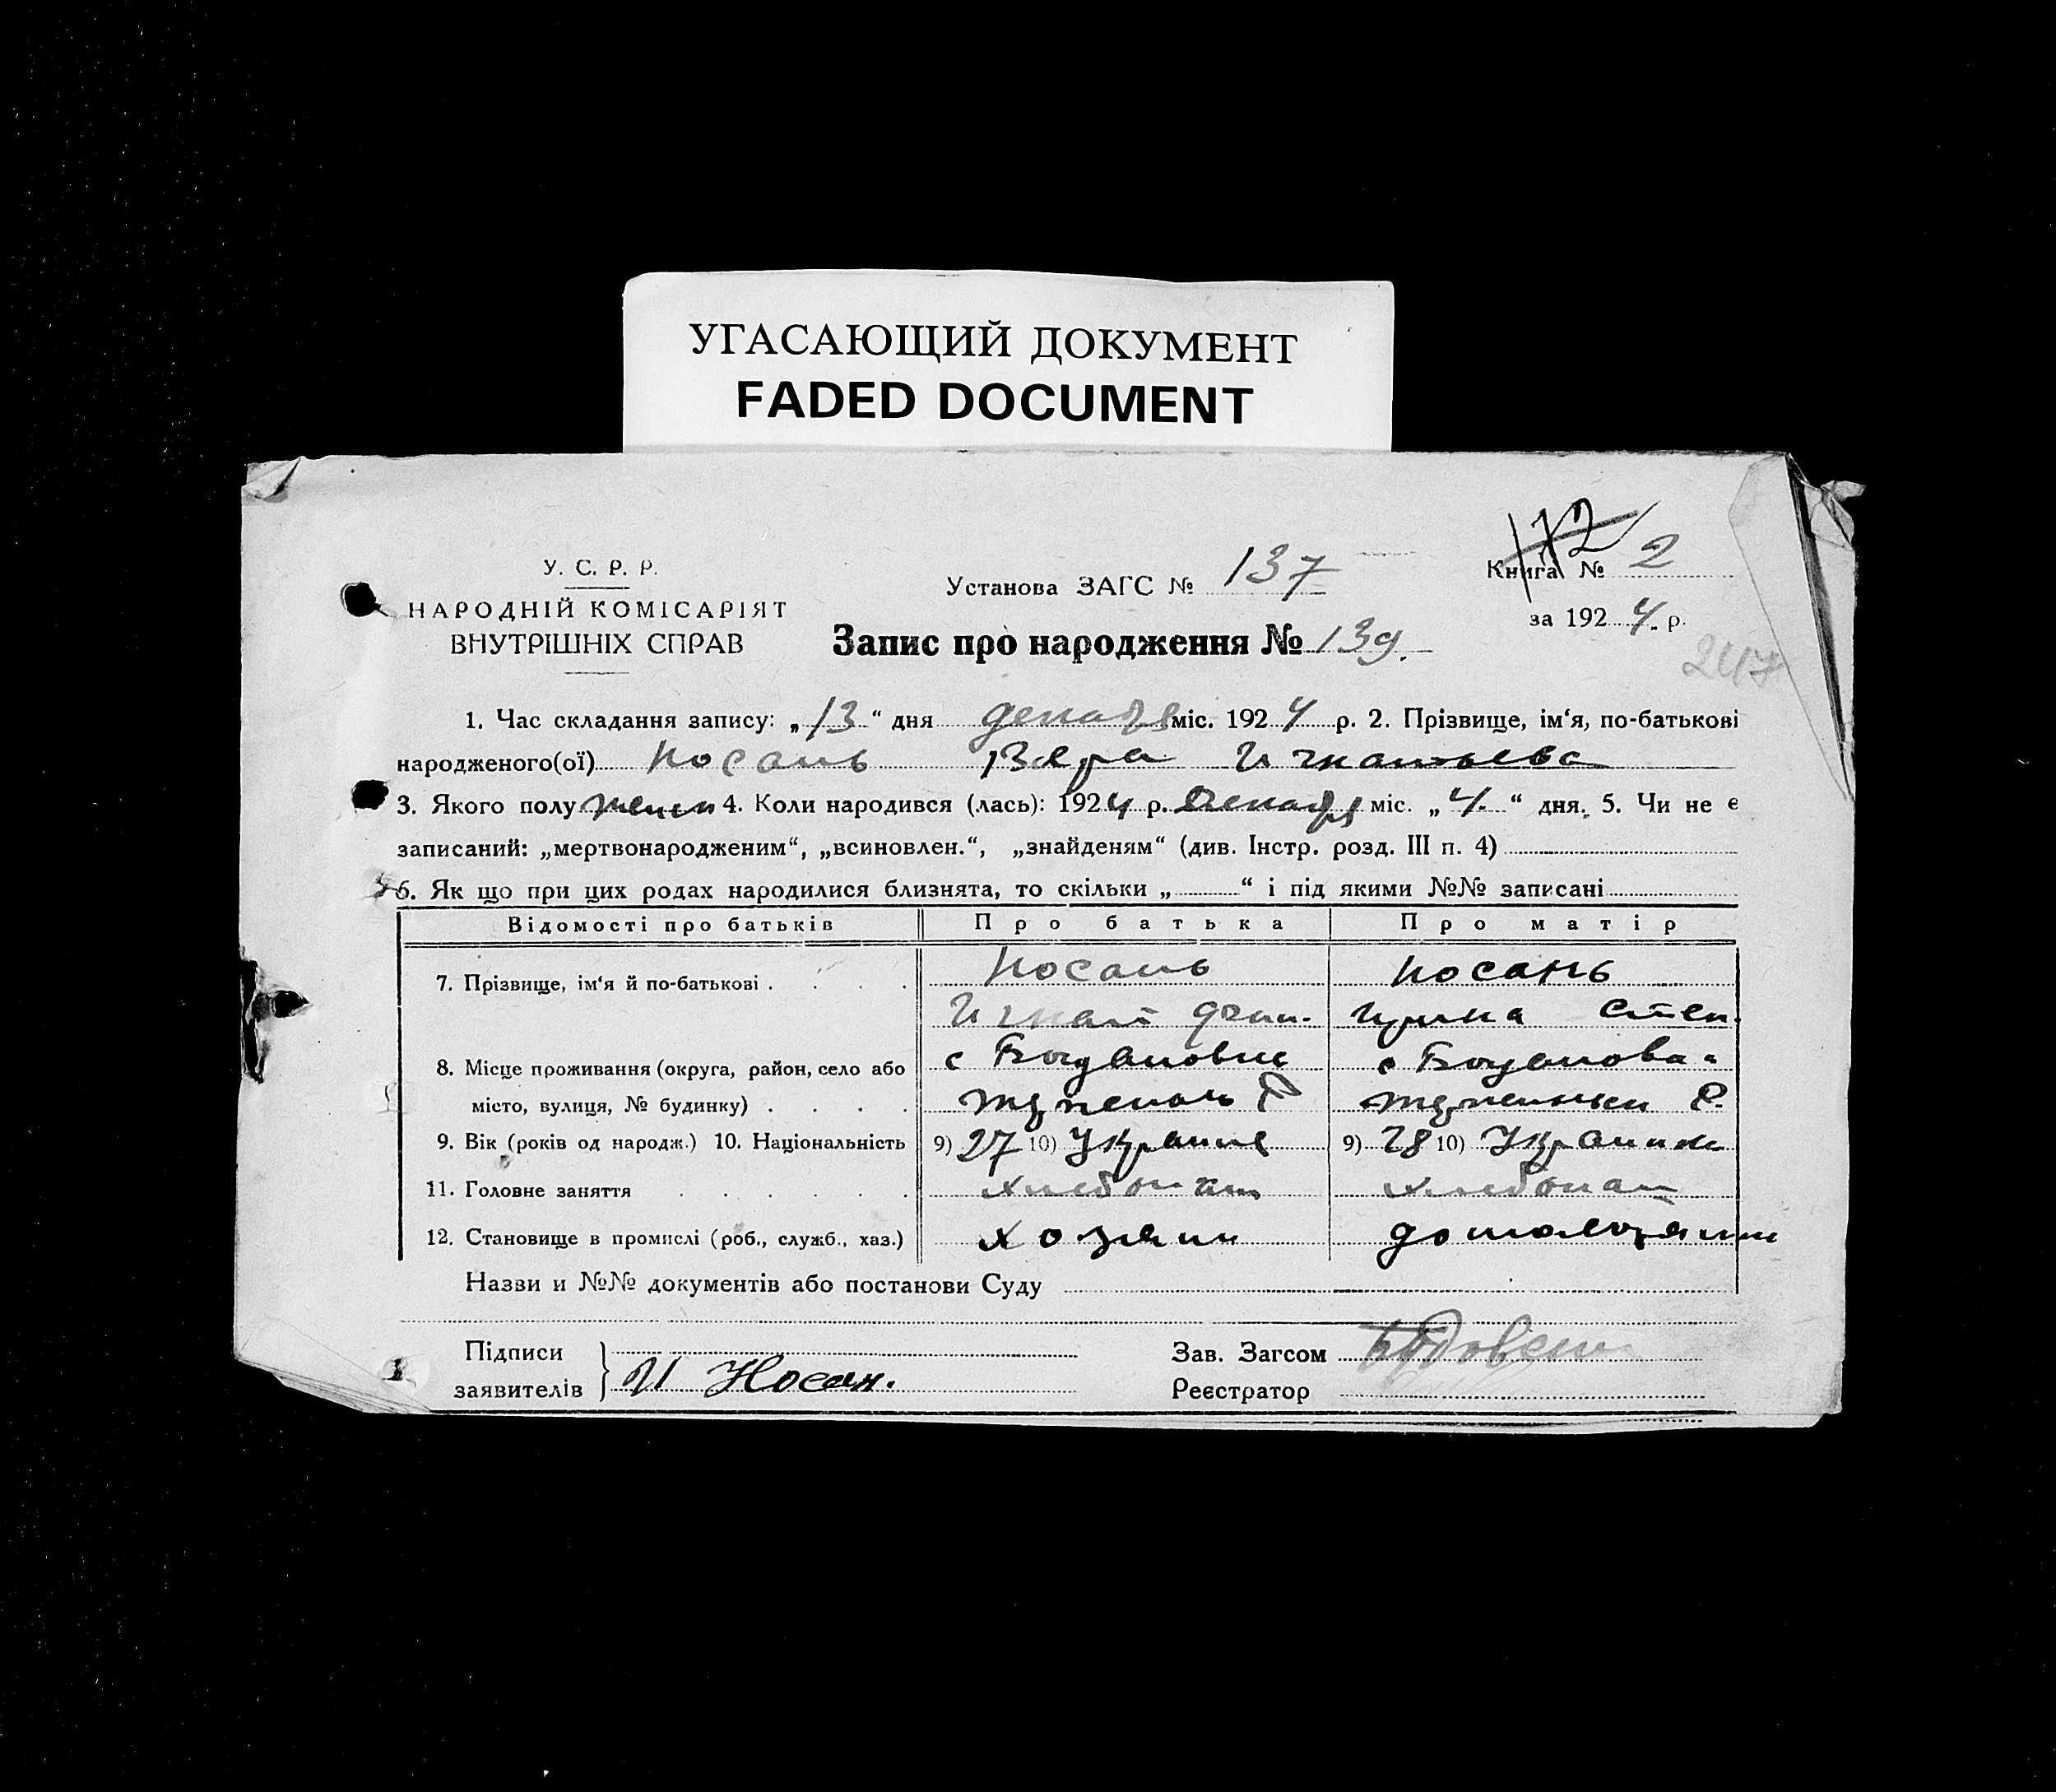 УГАСАЮЩИЙ ДОКУМЕНТ
FADED DOCUMENT
У. С. Р. Р.
НАРОДНІЙ КОМІСАРІЯТ
ВНУТРІШНІХ СПРАВ
Установа ЗАГС № 137
Книга № 2
за 1924. р.
Запис про народження № 139.
247
1. Час складання запису: „13“ дня декабря міс. 1924 р. 2. Прізвище, ім‘я, по-батькові
народженого(ої) Носань Вера Игнатьева
3. Якого полу женск 4. Коли народився (лась): 1924 р. Декабря міс. „4.“ дня. 5. Чи не є
записаний: „мертвонародженим“, „всиновлен.“, „знайденям“ (див. Інстр. розд. III п. 4)
6. Як що при цих родах народилися близнята, то скільки „ “ і під якими №№ записані
Відомості про батьків Про батька Про матір
7. Прізвище, ім‘я й по-батькові Носань Носань
Игнат Степ.
8. Місце проживання (округа, район, село або с Богдановке с
місто, вулиця, № будинку)
9. Вік (років од народж.) 10. Національність 9) 27 10) Украине 9) 28 10) Украинка
11. Головне заняття хлебопаш хлебопаш
12. Становище в промислі (роб., служб., хаз.) хозяин
Назви и №№ документів або постанови Суду
Підписи
заявителів И Носан.
Зав. Загсом
Реєстратор